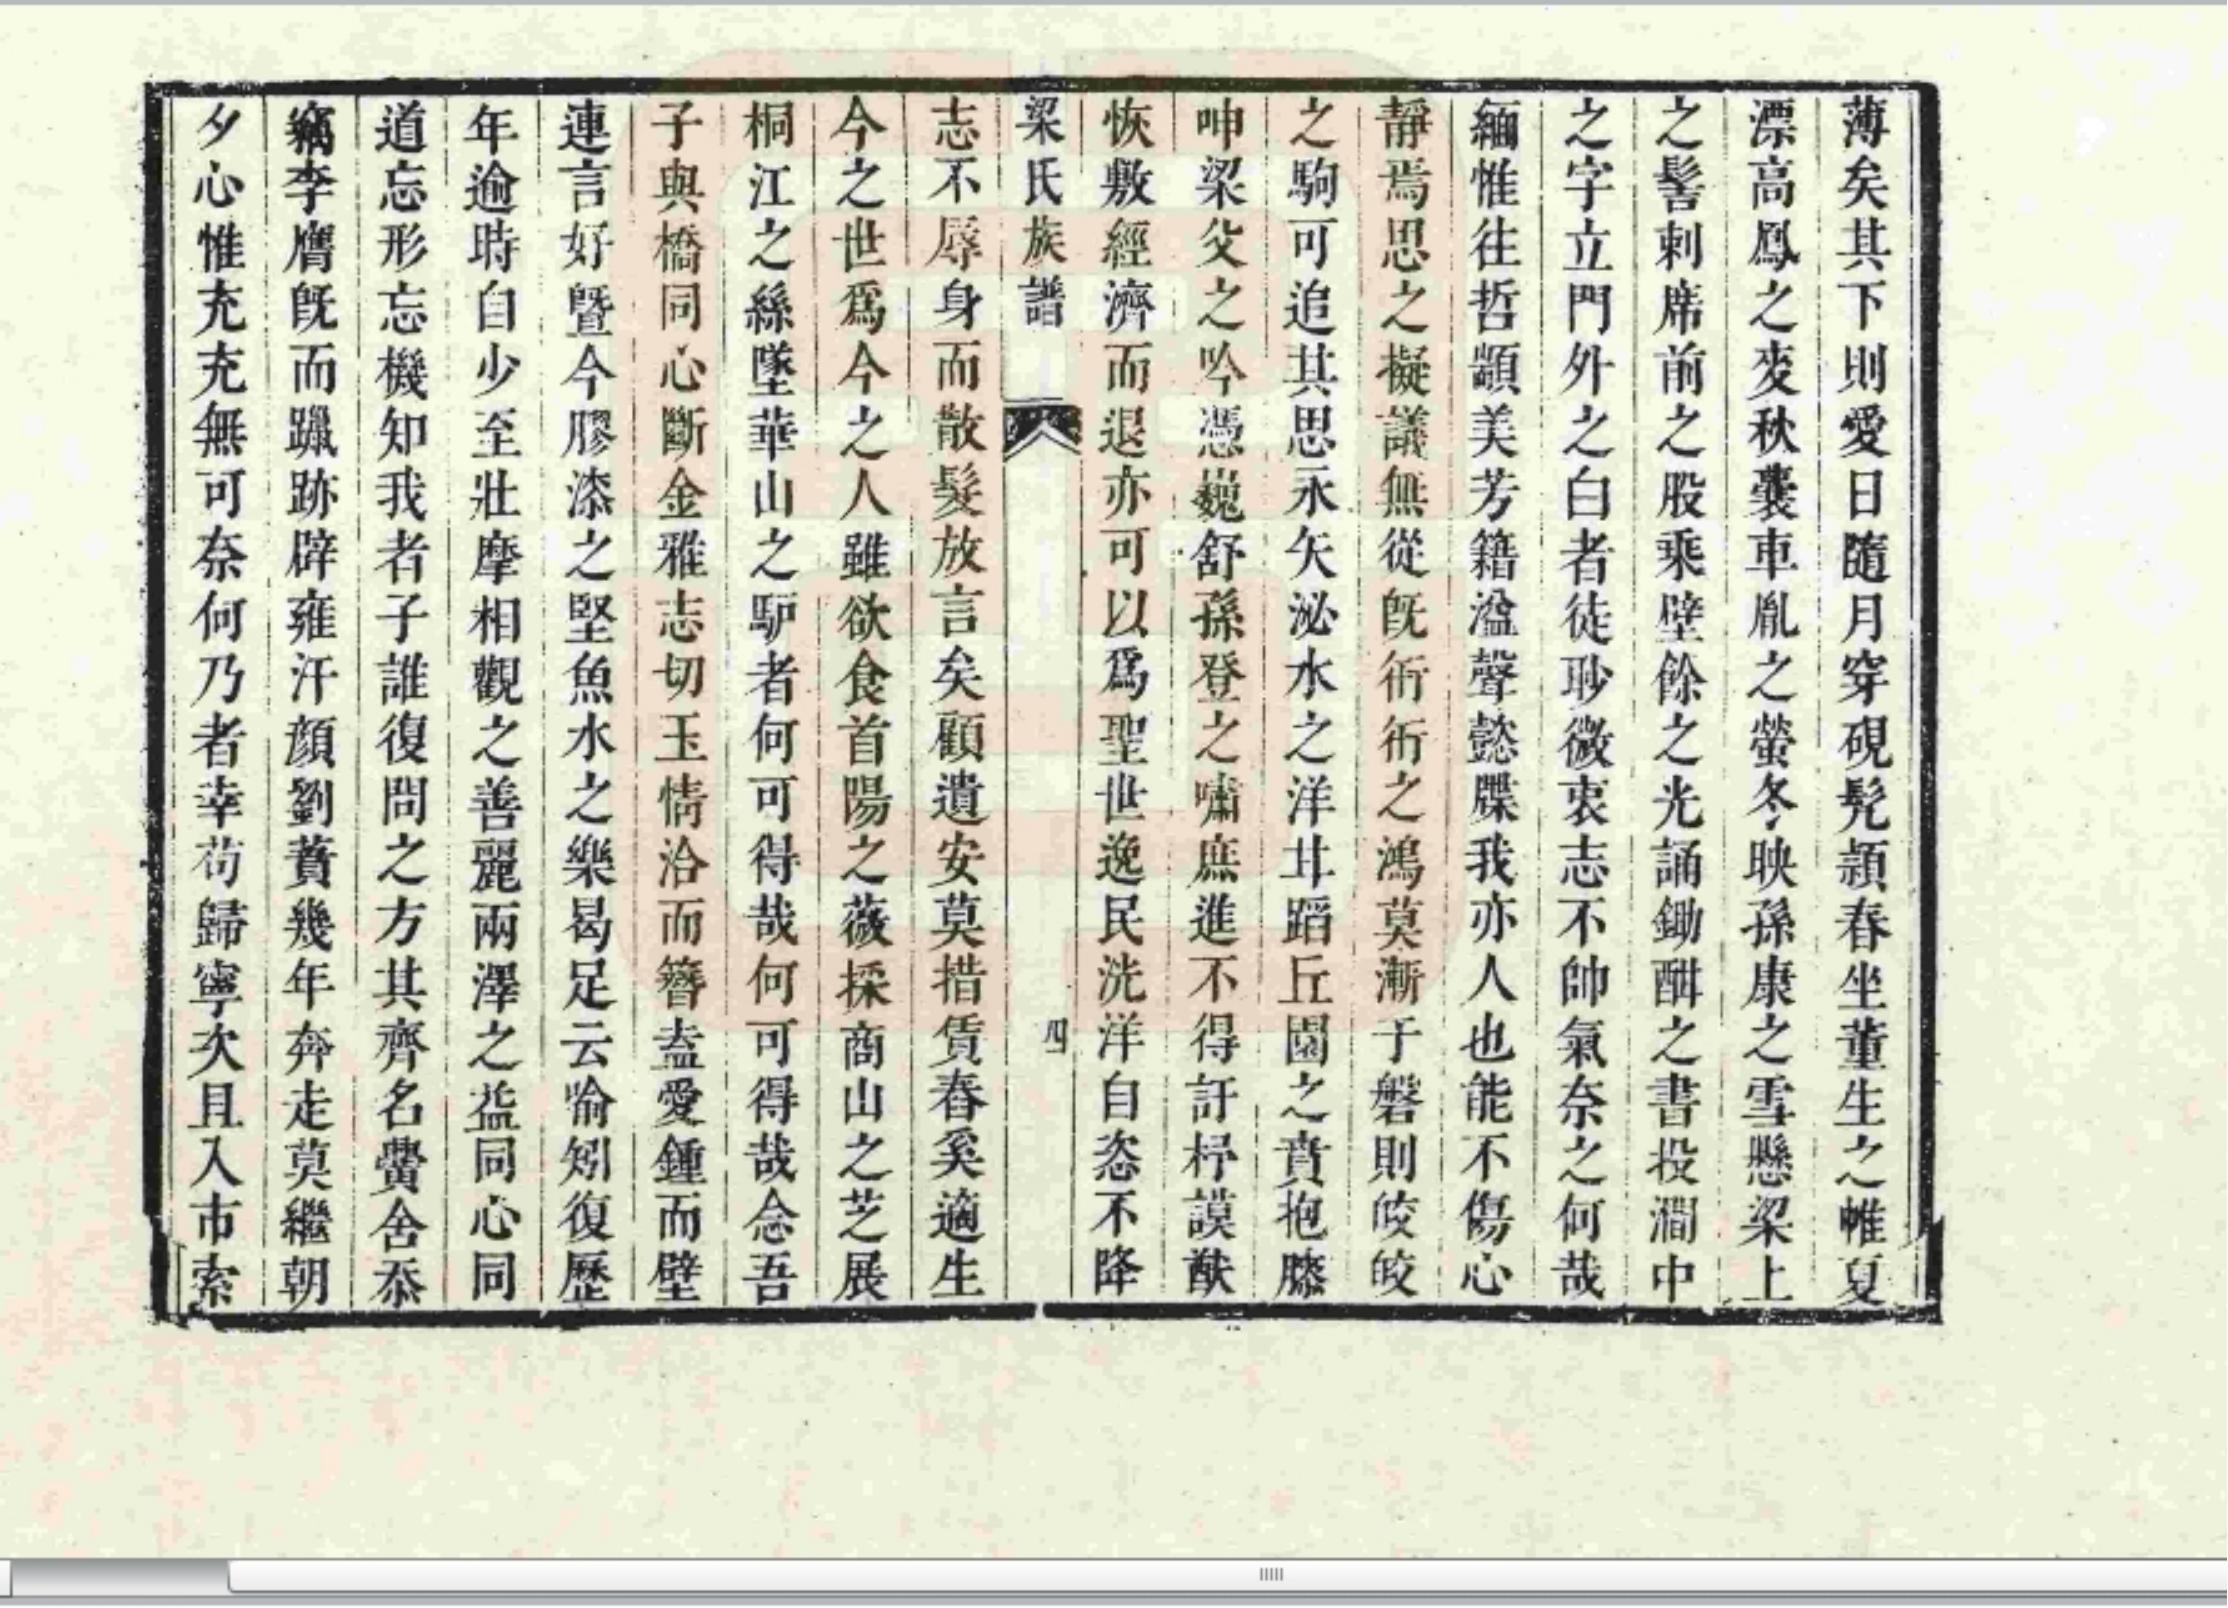 薄矣其下則愛日隨月穿硯髡穎春坐董生之帷夏
漂高鳳之麥秋囊車胤之螢冬映孫康之雪懸梁上
之髻刺席前之股乘壁餘之光誦鋤酣之書投澗中
之字立門外之白者徒眇微衷志不帥氣奈之何哉
緬惟往哲顓美芳籍溢聲懿牒我亦人也能不傷心
靜焉思之擬議無從既衎衎之鴻莫漸于磐則皎皎
之駒可追其思永矢泌水之洋廿蹈丘園之賁抱膝
呻梁父之吟憑巍舒孫登之嘯庶進不得訏抒謨猷
恢敷經濟而退亦可以爲聖世逸民洸洋自恣不降
梁氏族譜 四
志不辱身而散髮放言矣顧遺安莫措賃舂奚適生
今之世爲今之人雖欲食首陽之薇採商山之芝展
桐江之絲墜華山之馿者何可得哉何可得哉念吾
子與橋同心斷金雅志切玉情洽而簪盍愛鍾而壁
連言好曁今膠漆之堅魚水之樂曷足云喻矧復歷
年逾時自少至壯摩相觀之善麗兩澤之益同心同
道忘形忘機知我者子誰復問之方其齊名黌舍忝
竊李膺既而躐跡辟雍汗顔劉蕡幾年奔走莫繼朝
夕心惟充充無可奈何乃者幸苟歸寧次且入市索